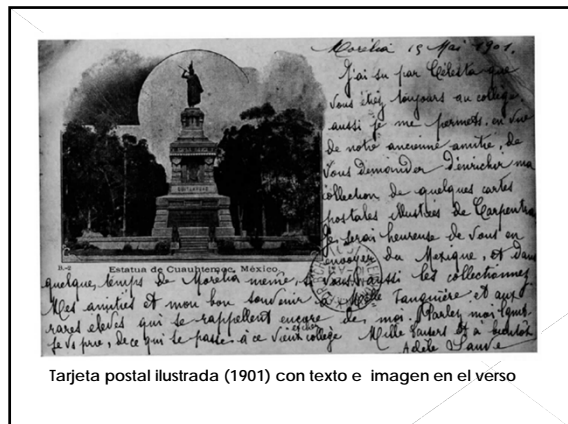 Morélia 15 Mai 1901.
J'ai su par Célesta que
vous étiez toujours au collège
aussi je me permets, en vue
de notre ancienne amitié, de
vous demander d'enrichir ma
collection de quelques cartes
postales illustrées de Carpentras
je serai heureuse de vous en
envoyer du Mexique, et dans
R.-2
Estatua de Cuauhtemoc, México.
quelque temps de Morelia même, si vous aussi les collectionnez
Mes amitiés et mon bon souvenir à Melle Tanquière et aux
rares élèves qui se rappellent encore de moi. Parlez moi
je vs prie, de ce qui se passe à ce vieux collège Mille baisers et à bientôt
Adèle
Tarjeta postal ilustrada (1901) con texto e imagen en el verso